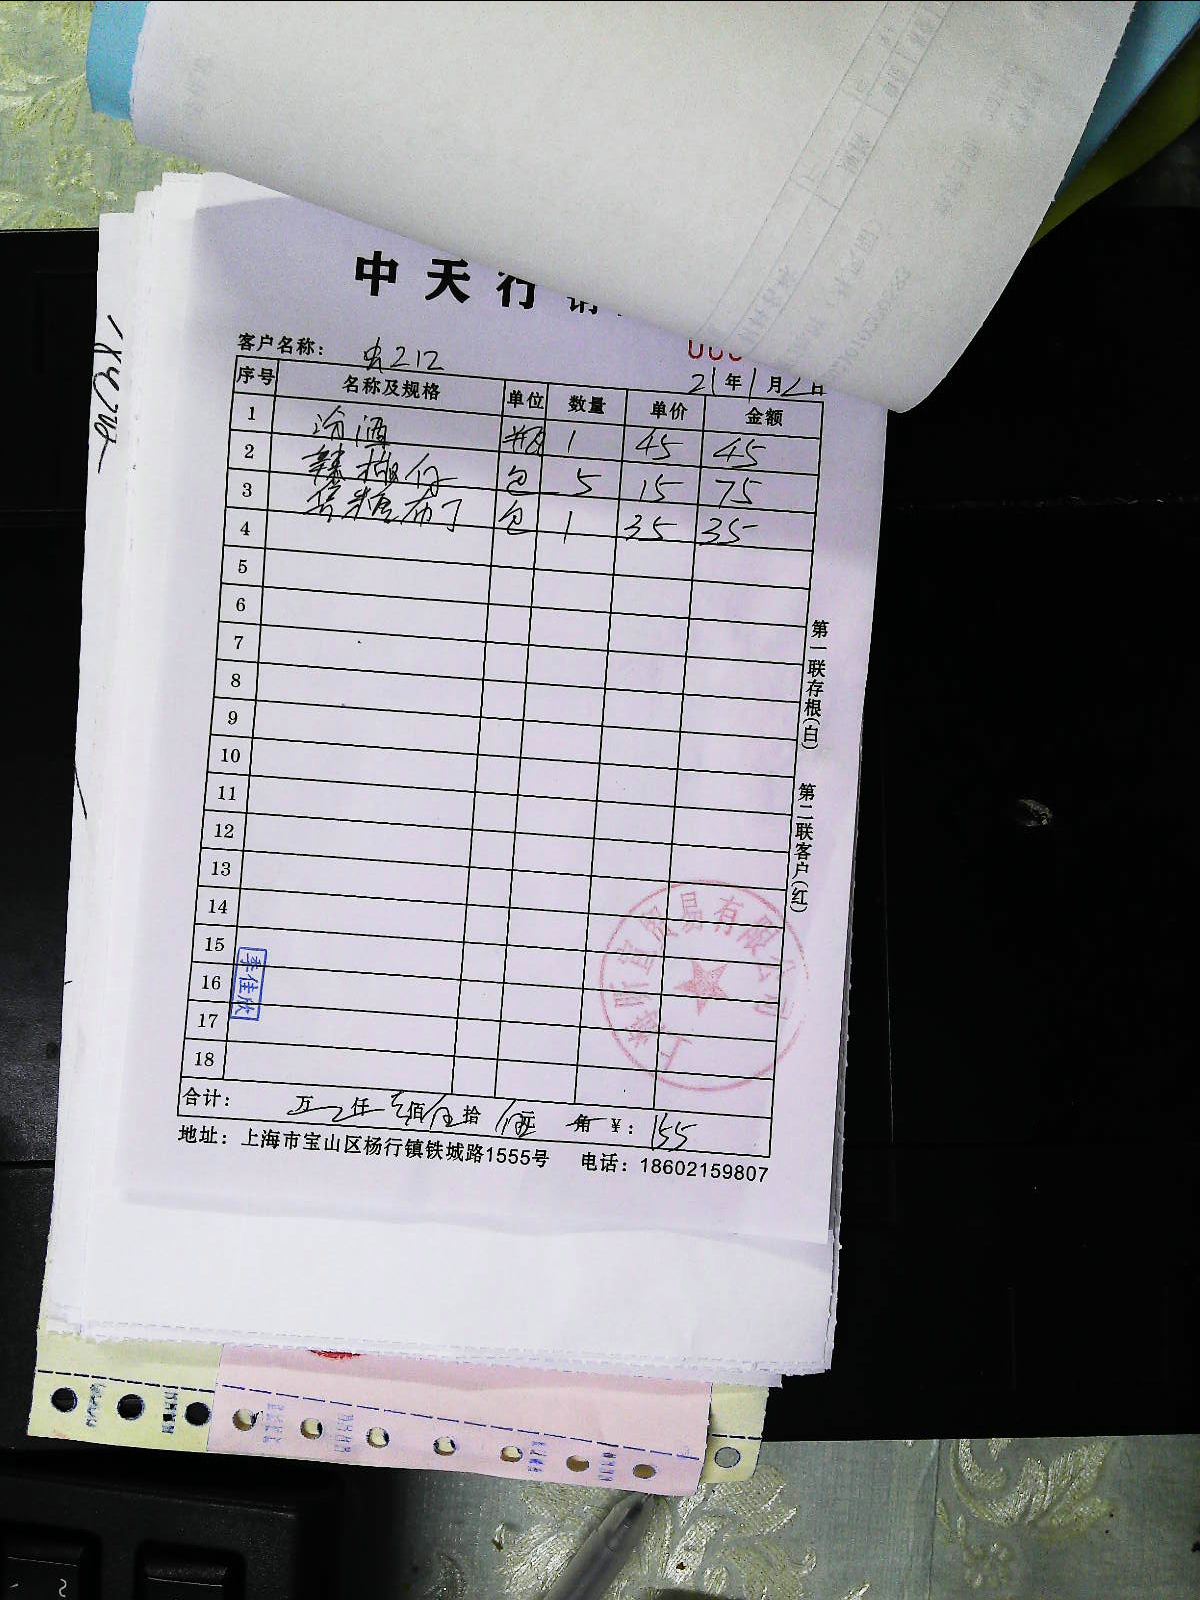 中天行
客户名称： 212
21年1月2日
序号 名称及规格 单位 数量 单价 金额
1 汾酒 瓶 1 45 45
2 辣椒仔 包 5 15 75
3 焦糖布丁 包 1 35 35
4
5
6
7
8
9
10
11
12
13
14
15
16
17
18
李佳欣
贸易有限公司
合计： 万 仟 佰 拾 角 ¥: 155
地址：上海市宝山区杨行镇铁城路1555号 电话：18602159807
第一联存根(白)
第二联客户(红)